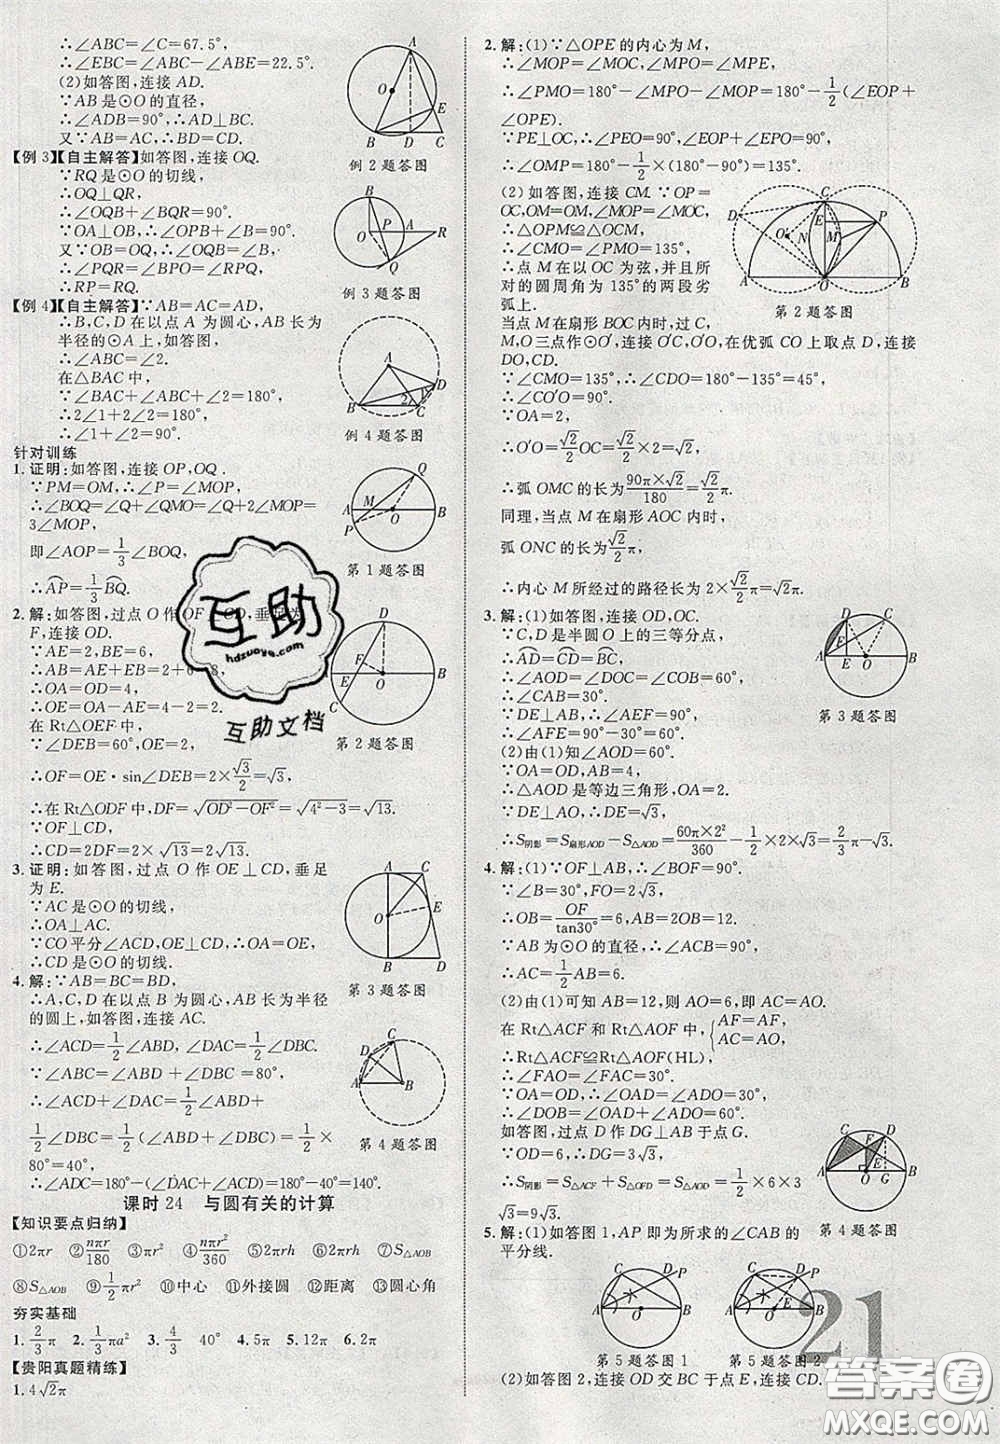 ∴∠ABC=∠C=67.5°,
∴∠EBC=∠ABC-∠ABE=22.5°.
(2)如答图,连接 AD.
∵AB 是⊙O 的直径,
∴∠ADB=90°,∴AD⊥BC.
又∵AB=AC,∴BD=CD.
例 2 题答图
【例 3】【自主解答】如答图,连接 OQ.
∵RQ 是⊙O 的切线,
∴OQ⊥QR,
∴∠OQB+∠BQR=90°.
∵OA⊥OB,∴∠OPB+∠B=90°.
又∵OB=OQ,∴∠OQB=∠B,
∴∠PQR=∠BPO=∠RPQ,
∴RP=RQ.
例 3 题答图
【例 4】【自主解答】∵AB=AC=AD,
∴B,C,D 在以点 A 为圆心,AB 长为
半径的⊙A 上,如答图,
∴∠ABC=∠2.
在△BAC 中,
∵∠BAC+∠ABC+∠2=180°,
∴2∠1+2∠2=180°,
∴∠1+∠2=90°.
例 4 题答图
针对训练
1. 证明:如答图,连接 OP,OQ.
∵PM=OM,∴∠P=∠MOP,
∴∠BOQ=∠Q+∠QMO=∠Q+2∠MOP=
3∠MOP,
即∠AOP=1/3∠BOQ,
∴AP=1/3BQ.
第 1 题答图
2. 解:如答图,过点 O 作 OF⊥CD,垂足为
F,连接 OD.
∵AE=2,BE=6,
∴AB=AE+BE=2+6=8,
∴OA=OD=4,
∴OE=OA-AE=4-2=2.
在 Rt△OEF 中,
∵∠DEB=60°,OE=2,
∴OF=OE·sin∠DEB=2×√3/2=√3,
第 2 题答图
∴在 Rt△ODF 中,DF=√(OD²-OF²)=√(4²-3)=√13.
∵OF⊥CD,
∴CD=2DF=2×√13=2√13.
3. 证明:如答图,过点 O 作 OE⊥CD,垂足
为 E.
∵AC 是⊙O 的切线,
∴OA⊥AC.
∵CO 平分∠ACD,OE⊥CD,∴OA=OE,
∴CD 是⊙O 的切线.
第 3 题答图
4. 解:∵AB=BC=BD,
∴A,C,D 在以点 B 为圆心,AB 长为半径
的圆上,如答图,连接 AC.
∴∠ACD=1/2∠ABD,∠DAC=1/2∠DBC.
∵∠ABC=∠ABD+∠DBC=80°,
∴∠ACD+∠DAC=1/2∠ABD+
1/2∠DBC=1/2(∠ABD+∠DBC)=1/2×
80°=40°,
第 4 题答图
∴∠ADC=180°-(∠DAC+∠ACD)=180°-40°=140°.
课时 24 与圆有关的计算
【知识要点归纳】
①2πr ②nπr/180 ③πr² ④nπr²/360 ⑤2πrh ⑥2πrh ⑦S△AOB
⑧S△AOB ⑨1/2πr² ⑩中心 ⑪外接圆 ⑫距离 ⑬圆心角
夯实基础
1. 2/3π 2. 1/3πa² 3. 4/3 40° 4. 5π 5. 12π 6. 2π
【贵阳真题精练】
1. 4√2π
2. 解:(1)∵△OPE 的内心为 M,
∴∠MOP=∠MOC,∠MPO=∠MPE,
∴∠PMO=180°-∠MPO-∠MOP=180°-1/2(∠EOP+
∠OPE).
∵PE⊥OC,∴∠PEO=90°,∴∠EOP+∠EPO=90°,
∴∠OMP=180°-1/2×(180°-90°)=135°.
(2)如答图,连接 CM. ∵OP=
OC,OM=OM,∠MOP=∠MOC,
∴△OPM≌△OCM,
∴∠CMO=∠PMO=135°,
∴点 M 在以 OC 为弦,并且所
对的圆周角为 135°的两段劣
弧上.
第 2 题答图
当点 M 在扇形 BOC 内时,过 C,
M,O 三点作⊙O′,连接 O′C,O′O,在优弧 CO 上取点 D,连接
DO,CD.
∵∠CMO=135°,∴∠CDO=180°-135°=45°,
∴∠CO′O=90°.
∵OA=2,
∴O′O=√2/2OC=√2/2×2=√2,
∴弧 OMC 的长为90π×√2/180=√2/2π.
同理,当点 M 在扇形 AOC 内时,
弧 ONC 的长为√2/2π.
∴内心 M 所经过的路径长为 2×√2/2π=√2π.
3. 解:(1)如答图,连接 OD,OC.
∵C,D 是半圆 O 上的三等分点,
∴AD=CD=BC,
∴∠AOD=∠DOC=∠COB=60°,
∴∠CAB=30°.
∵DE⊥AB,∴∠AEF=90°,
∴∠AFE=90°-30°=60°.
第 3 题答图
(2)由(1)知∠AOD=60°.
∵OA=OD,AB=4,
∴△AOD 是等边三角形,OA=2.
∵DE⊥AO,∴DE=√3,
∴S阴影=S扇形AOD-S△AOD=60π×2²/360-1/2×2×√3=2/3π-√3.
4. 解:(1)∵OF⊥AB,∴∠BOF=90°.
∵∠B=30°,FO=2√3,
∴OB=OF/tan30°=6,AB=2OB=12.
∵AB 为⊙O 的直径,∴∠ACB=90°,
∴AC=1/2AB=6.
(2)由(1)可知 AB=12,则 AO=6,即 AC=AO.
在 Rt△ACF 和 Rt△AOF 中,{AF=AF, AC=AO,
∴Rt△ACF≌Rt△AOF(HL),
∴∠FAO=∠FAC=30°.
∵OA=OD,∴∠OAD=∠ADO=30°,
∴∠DOB=∠OAD+∠ADO=60°.
如答图,过点 D 作 DG⊥AB 于点 G.
∵OD=6,∴DG=3√3,
∴S阴影=S△ACF+S△OFD=S△AOD=1/2×6×3
√3=9√3.
第 4 题答图
5. 解:(1)如答图 1,AP 即为所求的∠CAB 的
平分线.
第 5 题答图 1
第 5 题答图 2
(2)如答图 2,连接 OD 交 BC 于点 E,
21
互助
hdzuoye.com
互助文档
答案圈
MXQE.COM